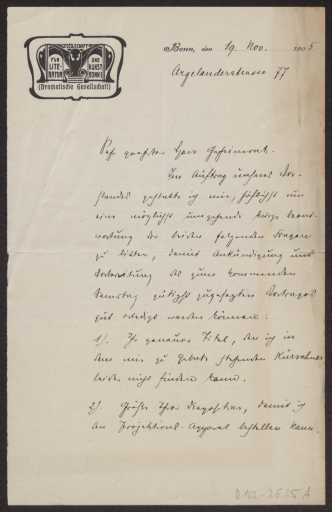 GESELLSCHAFT
FÜR UND
LITE- KUNST
RATUR BONN
(Dramatische Gesellschaft)
Bonn, den 19. Nov. 1905
Argelanderstrasse 77
Sehr geehrter Herr Geheimrat.
Im Auftrag unseres Vor-
standes gestatte ich mir, höflichst um
eine möglichst umgehende kurze Beant-
wortung der beiden folgenden Fragen
zu bitten, damit Ankündigung und
Vorbereitung des zum kommenden
Samstag gütigst zugesagten Vortrages
gut erledigt werden können:
1). Ihr genauer Titel, den ich in
dem mir zu Gebote stehenden Kürschner
leider nicht finden kann.
2). Größe Ihrer Diapositive, damit ich
den Projektions-Apparat bestellen kann.